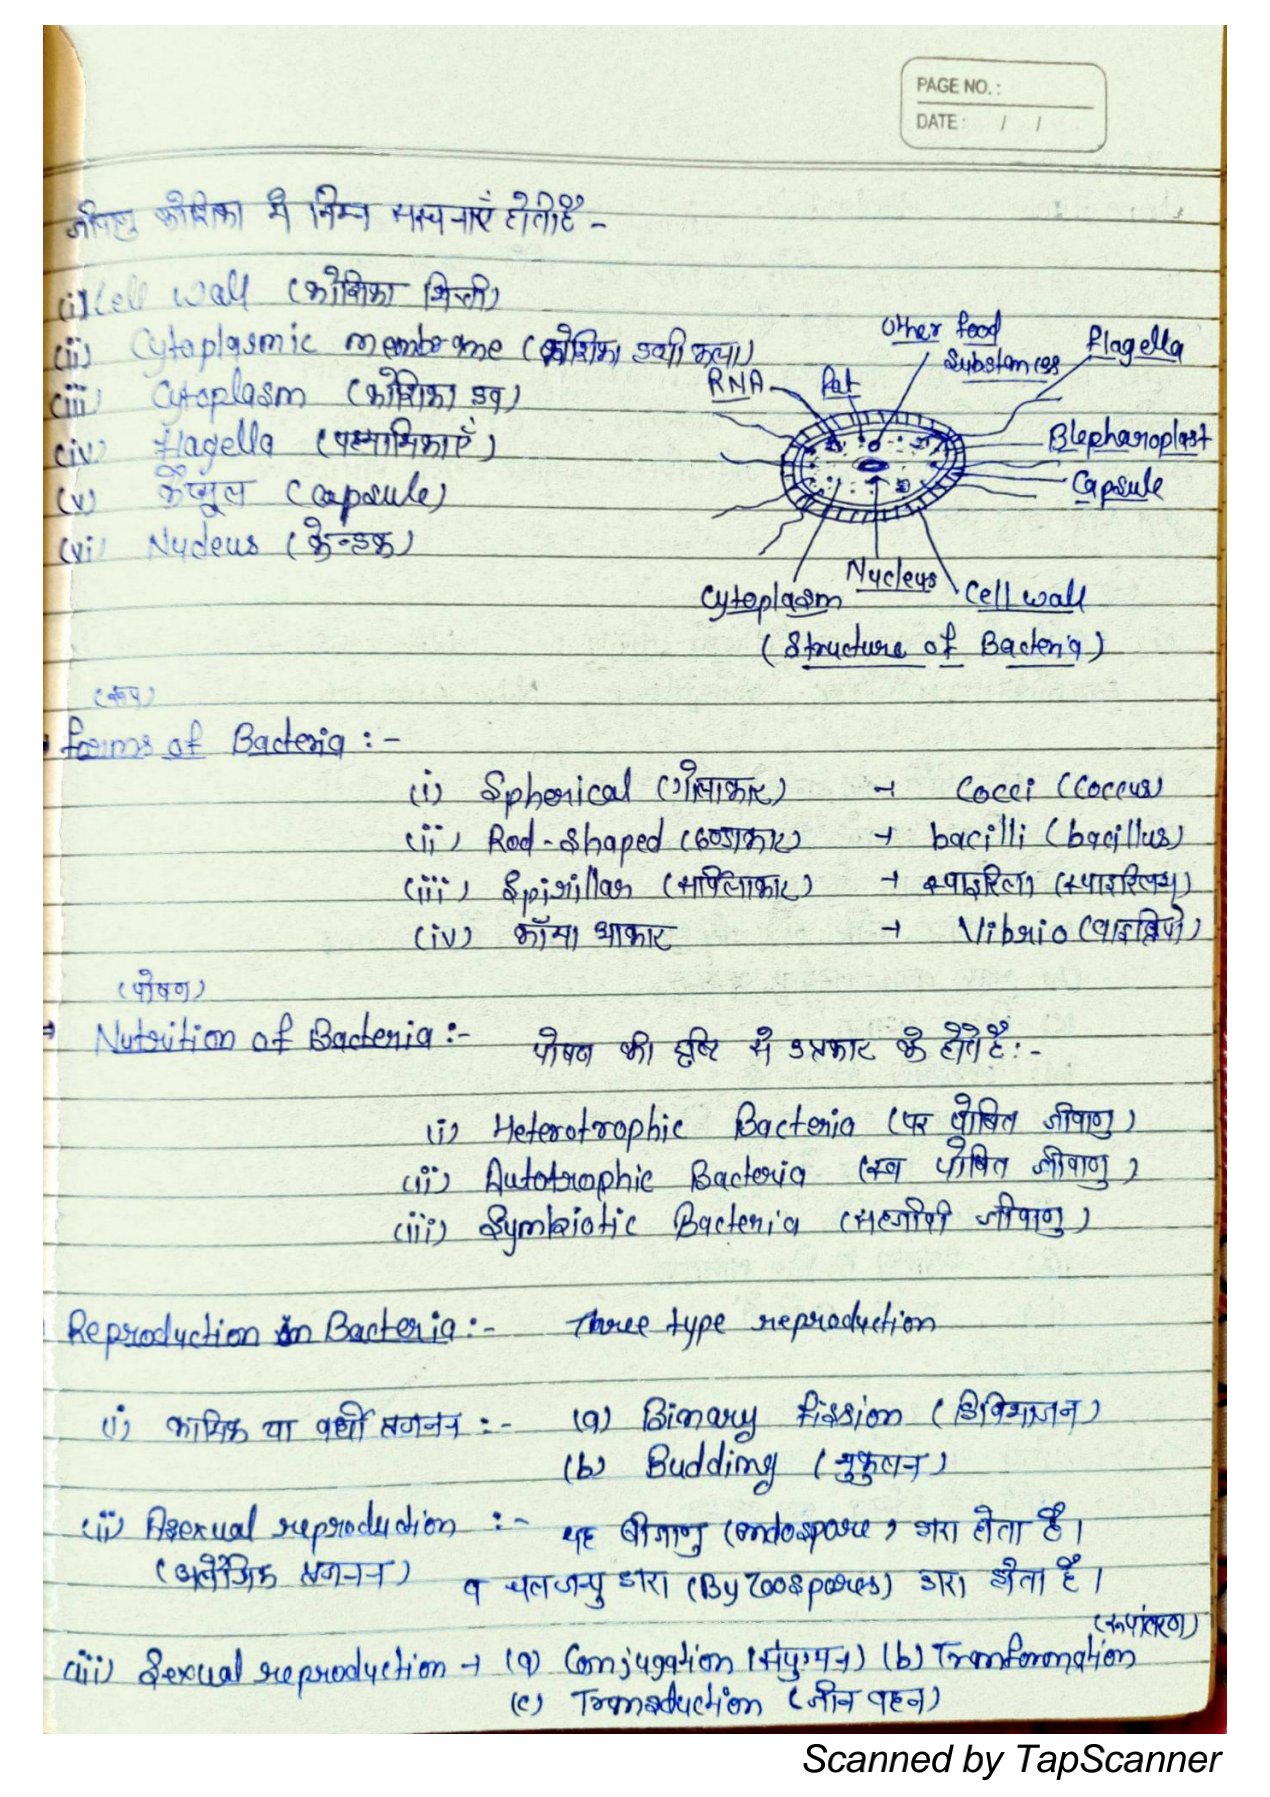 PAGE NO.:
DATE: / /
जीवाणु कोशिका में निम्न संरचनाएँ होती है -
(i) Cell wall (कोशिका भित्ती)
(ii) Cytoplasmic membrane (कोशिका द्रव्यी कला)
(iii) Cytoplasm (कोशिका द्रव)
(iv) Flagella (पक्ष्माभिकाएँ)
(v) कैप्सूल (Capsule)
(vi) Nucleus (केन्द्रक)
Other food
Substances
Flagella
RNA
Fat
Blepharoplast
Capsule
Nucleus
Cytoplasm
Cell wall
(Structure of Bacteria)
(रूप)
Forms of Bacteria :-
(i) Spherical (गोलाकार) → Cocci (Coccus)
(ii) Rod-shaped (दण्डाकार) → bacilli (bacillus)
(iii) Spirillar (सर्पिलाकार) → स्पाइरिला (स्पाइरिलम)
(iv) कॉमा आकार → Vibrio (वाइब्रियो)
(पोषण)
⇒ Nutrition of Bacteria :- पोषण की दृष्टि से 3 प्रकार के होते हैं :-
(i) Heterotrophic Bacteria (पर पोषित जीवाणु)
(ii) Autotrophic Bacteria (स्व पोषित जीवाणु)
(iii) Symbiotic Bacteria (सहजीवी जीवाणु)
Reproduction in Bacteria :- Three type reproduction
(i) कायिक या वर्धी प्रजनन :- (a) Binary fission (द्विविभाजन)
(b) Budding (मुकुलन)
(ii) Asexual reproduction :- यह बीजाणु (endospore) द्वारा होता है।
(अलैंगिक प्रजनन) व चलजन्यु द्वारा (By Zoospores) द्वारा होता है।
(रूपांतरण)
(iii) Sexual reproduction → (a) Conjugation (संयुग्मन) (b) Tranformation
(c) Transduction (जीन वहन)
Scanned by TapScanner